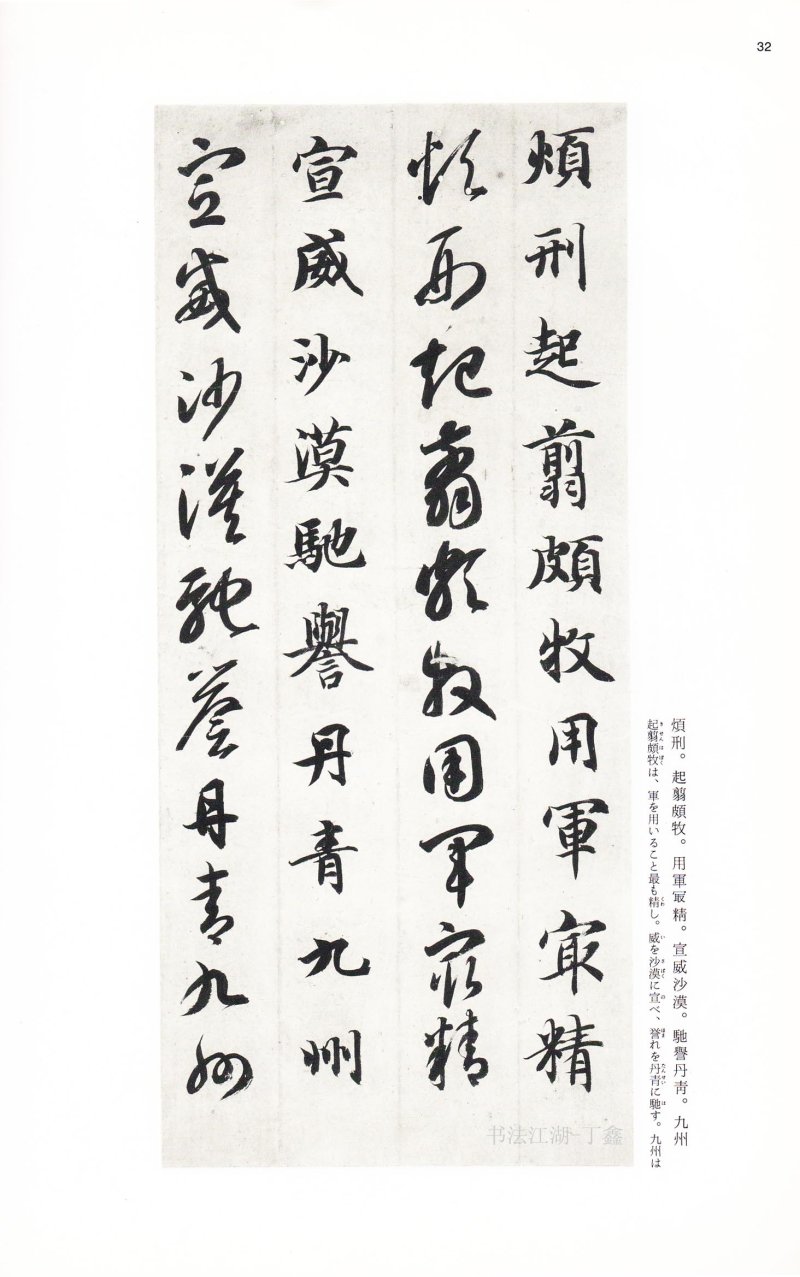 32
煩刑起翦頗牧用軍㝡精
煩刑起翦頗牧用軍㝡精
宣威沙漠馳譽丹青九州
宣威沙漠馳譽丹青九州
煩刑。起翦頗牧。用軍㝡精。宣威沙漠。馳譽丹靑。九州
起翦頗牧は、軍を用いること最も精し。威を沙漠に宣べ、誉れを丹青に馳す。九州は
书法江湖-丁鑫